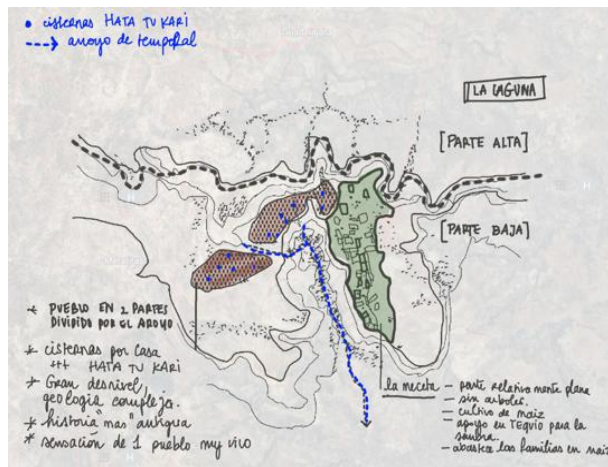 • cisternas HATA TUKARI
---> arroyo de temporal
LA LAGUNA
[PARTE ALTA]
[PARTE BAJA]
* PUEBLO EN 2 PARTES
DIVIDIDO POR EL ARROYO
* cisternas por casa
+++ HATA TUKARI
* Gran desnivel,
geologia compleja.
* historia "mas" antigua
* sensación de 1 pueblo muy vivo
la meceta
— parte relativamente plana
— sin arboles.
— cultivo de maiz
— apoyo en TEQUIO para la
— abastece las familias en maiz